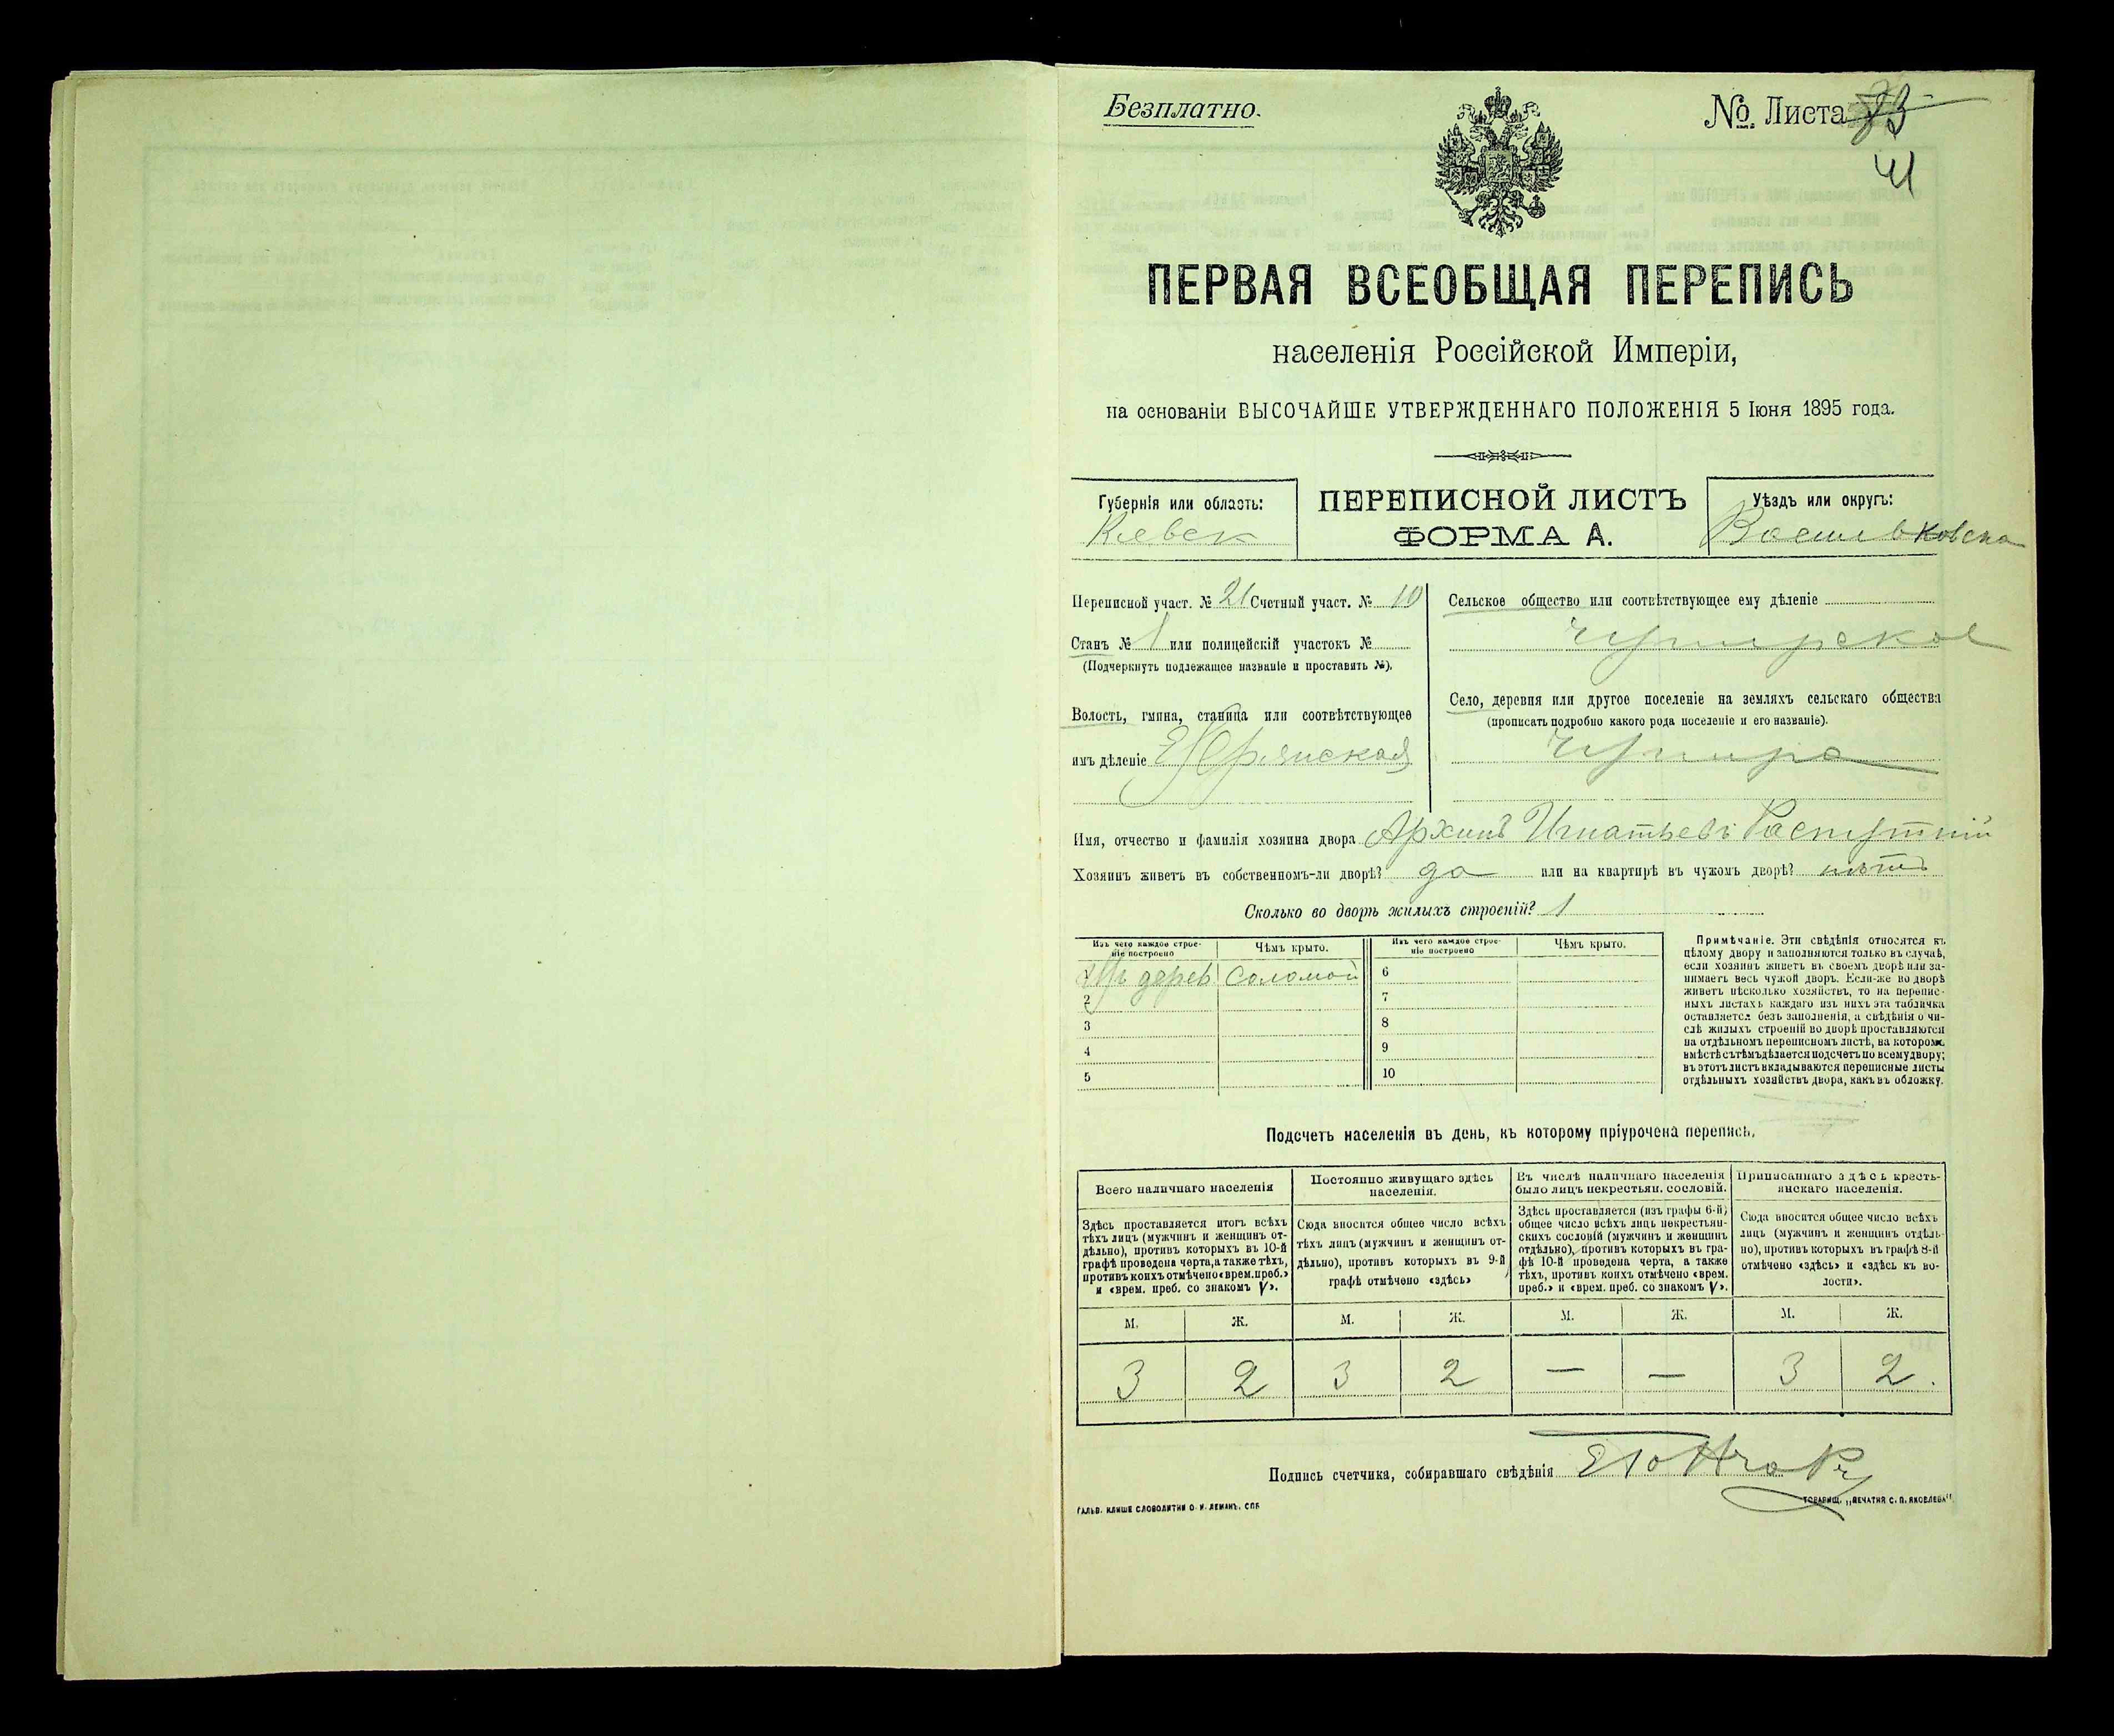 Безплатно.
№ Листа
41
ПЕРВАЯ ВСЕОБЩАЯ ПЕРЕПИСЬ
населенія Россійской Имперіи,
на основаніи ВЫСОЧАЙШЕ УТВЕРЖДЕННАГО ПОЛОЖЕНІЯ 5 Іюня 1895 года.
Губернія или область:
Киевск
ПЕРЕПИСНОЙ ЛИСТЪ
ФОРМА А.
Уѣздъ или округъ:
Васильковска
Переписной участ. № 21 Счетный участ. № 10
Станъ № 1 или полицейскій участокъ №
(Подчеркнуть подлежащее названіе и проставить №).
Волость, гмина, станица или соотвѣтствующее
имъ дѣленіе
Сельское общество или соотвѣтствующее ему дѣленіе
Чупирское
Село, деревня или другое поселеніе на земляхъ сельскаго общества
(прописать подробно какого рода поселеніе и его названіе).
Чупира
Имя, отчество и фамилія хозяина двора Архипъ Игнатьевъ Распутній
Хозяинъ живетъ въ собственномъ-ли дворѣ? да или на квартирѣ въ чужомъ дворѣ? нѣтъ
Сколько во дворѣ жилыхъ строеній? 1
Изъ чего каждое строе-
ніе построено
Чѣмъ крыто.
Изъ чего каждое строе-
ніе построено
Чѣмъ крыто.
1 Изъ дерев соломой
2
3
4
5
6
7
8
9
10
Примѣчаніе. Эти свѣдѣнія относятся къ
цѣлому двору и заполняются только въ случаѣ,
если хозяинъ живетъ въ своемъ дворѣ или за-
нимаетъ весь чужой дворъ. Если-же во дворѣ
живетъ нѣсколько хозяйствъ, то на перепис-
ныхъ листахъ каждаго изъ нихъ эта табличка
оставляется безъ заполненія, а свѣдѣнія о чи-
слѣ жилыхъ строеній во дворѣ проставляются
на отдѣльномъ переписномъ листѣ, на которомъ
вмѣстѣ съ тѣмъ дѣлается подсчетъ по всему двору;
въ этотъ листъ вкладываются переписные листы
отдѣльныхъ хозяйствъ двора, какъ въ обложку.
Подсчетъ населенія въ день, къ которому пріурочена перепись.
Всего наличнаго населенія
Здѣсь проставляется итогъ всѣхъ
тѣхъ лицъ (мужчинъ и женщинъ от-
дѣльно), противъ которыхъ въ 10-й
графѣ проведена черта, а также тѣхъ,
противъ коихъ отмѣчено «врем. преб.»
и «врем. преб. со знакомъ V».
Постоянно живущаго здѣсь
населенія.
Сюда вносится общее число всѣхъ
тѣхъ лицъ (мужчинъ и женщинъ от-
дѣльно), противъ которыхъ въ 9-й
графѣ отмѣчено «здѣсь»
Въ числѣ наличнаго населенія
было лицъ некрестьян. сословій.
Здѣсь проставляется (изъ графы 6-й)
общее число всѣхъ лицъ некрестьян-
скихъ сословій (мужчинъ и женщинъ
отдѣльно), противъ которыхъ въ гра-
фѣ 10-й проведена черта, а также
тѣхъ, противъ коихъ отмѣчено «врем.
преб.» и «врем. преб. со знакомъ V».
Приписаннаго здѣсь кресть-
янскаго населенія.
Сюда вносится общее число всѣхъ
лицъ (мужчинъ и женщинъ отдѣль-
но), противъ которыхъ въ графѣ 8-й
отмѣчено «здѣсь» и «здѣсь къ во-
лости».
М. Ж. М. Ж. М. Ж. М. Ж.
3 2 3 2 — — 3 2.
Подпись счетчика, собиравшаго свѣдѣнія
ГАЛЬВ. КЛИШЕ СЛОВОЛИТНИ О. И. ЛЕМАНЪ. СПБ.
ТОВАРИЩ. „ПЕЧАТНЯ С. П. ЯКОВЛЕВА“